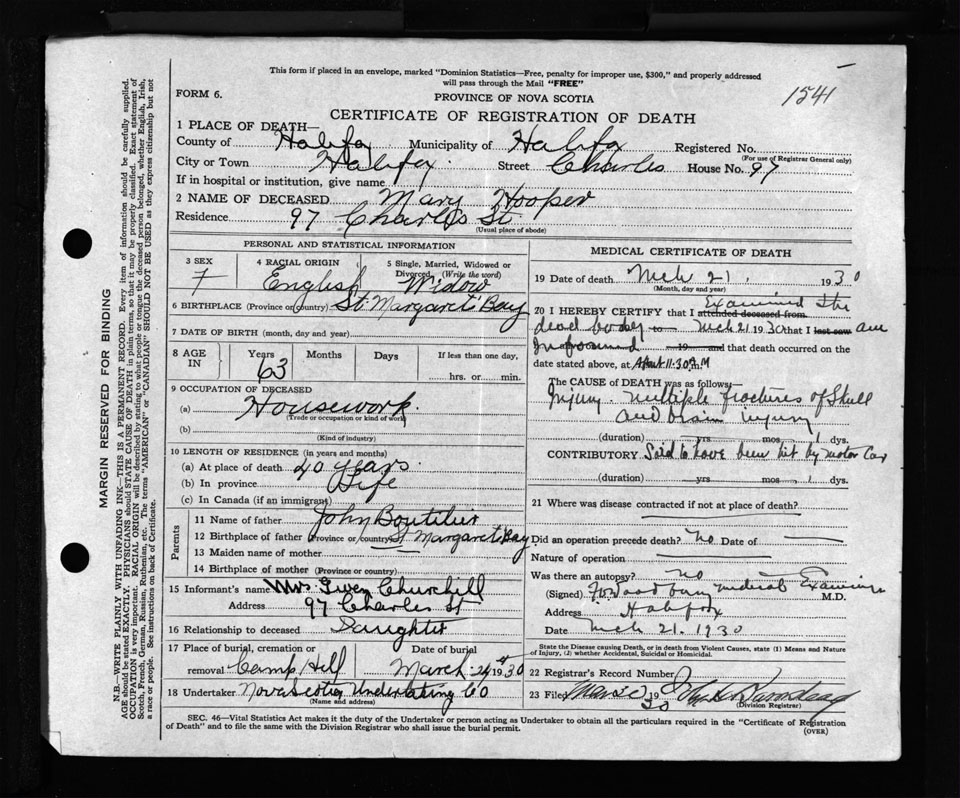 This form if placed in an envelope, marked "Dominion Statistics—Free, penalty for improper use, $300," and properly addressed
will pass through the Mail "FREE"
FORM 6.
PROVINCE OF NOVA SCOTIA
1541
CERTIFICATE OF REGISTRATION OF DEATH
1 PLACE OF DEATH—
County of Halifax Municipality of Halifax Registered No.
(For use of Registrar General only)
City or Town Halifax. Street Charles House No. 97
If in hospital or institution, give name
2 NAME OF DECEASED Mary Hooper
Residence 97 Charles St
(Usual place of abode)
PERSONAL AND STATISTICAL INFORMATION
3 SEX
F
4 RACIAL ORIGIN
English
5 Single, Married, Widowed or
Divorced (Write the word)
Widow
6 BIRTHPLACE (Province or Country) St. Margarets Bay
7 DATE OF BIRTH (month, day and year)
8 AGE IN
Years Months Days If less than one day,
63
hrs. or min.
9 OCCUPATION OF DECEASED
(a) Housework.
(Trade or occupation or kind of work)
(b)
(Kind of industry)
10 LENGTH OF RESIDENCE (in years and months)
(a) At place of death 40 years.
(b) In province Life
(c) In Canada (if an immigrant)
Parents
11 Name of father John Boutilier
12 Birthplace of father (Province or country) St Margarets Bay
13 Maiden name of mother
14 Birthplace of mother (Province or country)
15 Informant's name Mrs. Gwen Churchill
Address 97 Charles St
16 Relationship to deceased Daughter
17 Place of burial, cremation or
removal Camp Hill
Date of burial
March 24 1930
18 Undertaker Nova Scotia Undertaking Co
(Name and address)
MEDICAL CERTIFICATE OF DEATH
19 Date of death Mch 21. 1930
(Month, day and year)
Examined the
20 I HEREBY CERTIFY that I attended deceased from
dead body to Mch 21 1930 that I last saw am
Informed 19 and that death occurred on the
date stated above, at About 11.30 P.M
The CAUSE of DEATH was as follows—
Injury. Multiple fractures of Skull
and brain injury
(duration) yrs mos 1 dys.
CONTRIBUTORY Said to have been hit by motor Car
(duration) yrs mos 1 dys.
21 Where was disease contracted if not at place of death?
Did an operation precede death? No Date of
Nature of operation
Was there an autopsy? no
(Signed) Woodbury Medical Examiner
M.D.
Address Halifax
Date Mch 21. 1930
State the Disease causing Death, or in death from Violent Causes, state (1) Means and Nature
of Injury, (2) whether Accidental, Suicidal or Homicidal.
22 Registrar's Record Number
23 Filed 19 30
(Division Registrar)
SEC. 46—Vital Statistics Act makes it the duty of the Undertaker or person acting as Undertaker to obtain all the particulars required in the "Certificate of Registration
of Death" and to file the same with the Division Registrar who shall issue the burial permit.
(OVER)
MARGIN RESERVED FOR BINDING
N.B.—WRITE PLAINLY WITH UNFADING INK—THIS IS A PERMANENT RECORD. Every item of information should be carefully supplied.
AGE should be stated EXACTLY. PHYSICIANS should STATE CAUSE OF DEATH in plain terms, so that it may be properly classified. Exact statement of
OCCUPATION is very important. RACIAL ORIGIN will be described by stating to what people or tongue the deceased person belonged, whether English, Irish,
Scotch, French, German, Russian, Ruthenian, etc. The terms "AMERICAN" or "CANADIAN" SHOULD NOT BE USED as they express citizenship but not
a race or people. See instructions on back of Certificate.